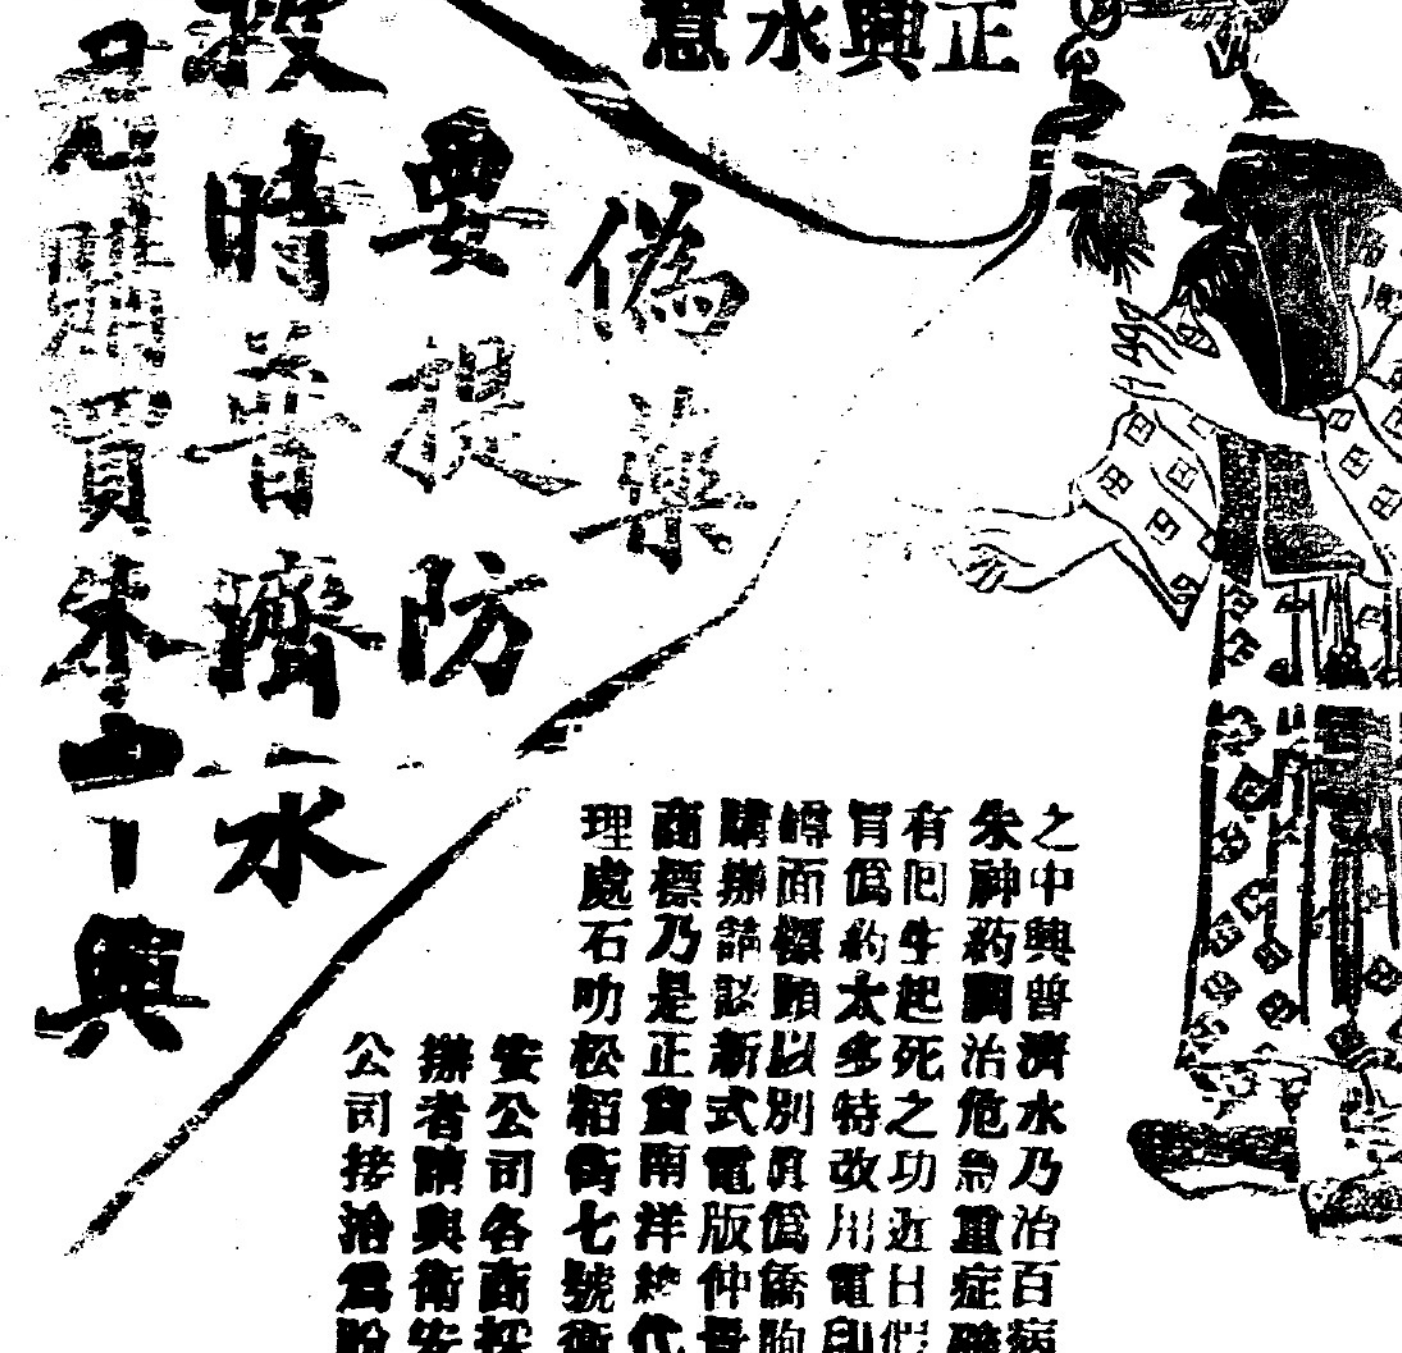 正興水意
偽藥
要提防
時普濟水
認明買朱中興
之中興普濟水乃治百病
朱神葯調治危急重症
有囘生起死之功近日假
冐偽葯太多特改川電印
罇面標頭以別眞僞僑胞
購辦請認新式電版仲景
商標乃是正貨南洋總代
理處石叻松栢街七號衛
安公司各商採
辦者請與衛安
公司接洽爲盼